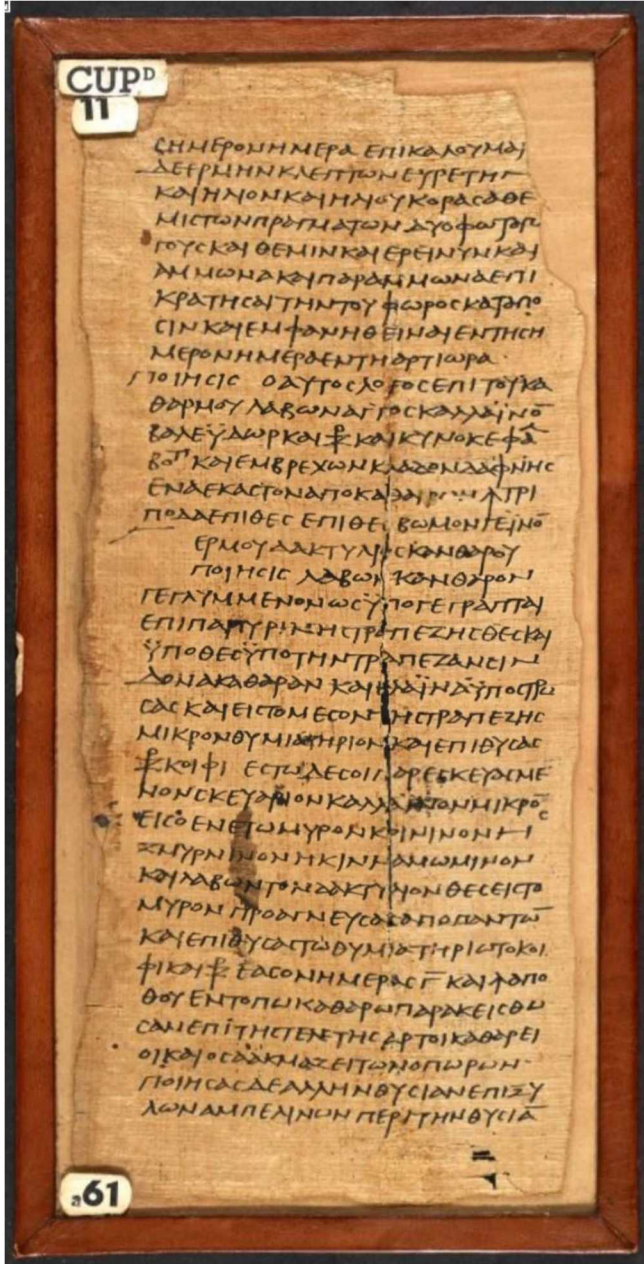 CUPᴰ
11
ϹΗΜΕΡΟΝΗΜΕΡΑ ΕΠΙΚΑΛΟΥΜΑΙ
ΔΕΕΡΜΗΝΚΛΕΠΤΩΝΕΥΡΕΤΗΝ
ΚΑΙΗΛΙΟΝΚΑΙΗΛΙΟΥΚΟΡΑϹΑΘΕ
ΜΙϹΤΩΝΠΡΑΓΜΑΤΩΝ ΔΥΟΦΩΤΑΓΩ
ΓΟΥϹΚΑΙΘΕΜΙΝΚΑΙΕΡΕΙΝΥΝΚΑΙ
ΑΜΜΩΝΑΚΑΙΠΑΡΑΜΜΩΝΑΕΠΙ
ΚΡΑΤΗϹΑΙΤΗΝΤΟΥΦΩΡΟϹΚΑΤΑΠΟ
ϹΙΝΚΑΙΕΜΦΑΝΗΘΕΙΝΑΙΕΝΤΗϹΗ
ΜΕΡΟΝΗΜΕΡΑΕΝΤΗΑΡΤΙΩΡΑ
ΠΟΙΗϹΙϹ ΟΑΥΤΟϹΛΟΓΟϹΕΠΙΤΟΥΚΑ
ΘΑΡΜΟΥΛΑΒΩΝΑΓΓΟϹΚΑΛΛΑΪΝΟ̅
ΒΑΛΕΫΔΩΡΚΑΙ ΚΑΙΚΥΝΟΚΕΦΑ
ΒΟΤ ΚΑΙΕΜΒΡΕΧΩΝΚΛΑΔΟΝΔΑΦΝΗϹ
ΕΝΑΕΚΑϹΤΟΝΑΠΟΚΑΘΑΙΡΩΝ ΛΤΡΙ
ΠΟΔΑΕΠΙΘΕϹ ΕΠΙΘΕΙ ΒΩΜΟΝΓΕΙΝΟ̅
ΕΡΜΟΥΔΑΚΤΥΛΙΟϹΚΑΝΘΑΡΟΥ
ΠΟΙΗϹΙϹ ΛΑΒΩΝΚΑΝΘΑΡΟΝ
ΓΕΓΛΥΜΜΕΝΟΝΩϹΫΠΟΓΕΓΡΑΠΤΑΙ
ΕΠΙΠΑΠΥΡΙΝΗϹΤΡΑΠΕΖΗϹΘΕϹΚΑΙ
ΫΠΟΘΕϹΫΠΟΤΗΝΤΡΑΠΕΖΑΝϹΙΝ
ΔΟΝΑΚΑΘΑΡΑΝ ΚΑΙΕΛΑΪΝΑΫΠΟϹΤΡΩ
ϹΑϹΚΑΙΕΙϹΤΟΜΕϹΟΝΤΗϹΤΡΑΠΕΖΗϹ
ΜΙΚΡΟΝΘΥΜΙΑΤΗΡΙΟΝΚΑΙΕΠΙΘΥϹΑϹ
ΚΟΙΦΙ ΕϹΤΩΔΕϹΟΙΠΑΡΕϹΚΕΥΑϹΜΕ
ΝΟΝϹΚΕΥΑΡΙΟΝΚΑΛΛΑΪΝΟΝΜΙΚΡΟ̅
ΕΙϹΟΕΝΕϹΤΩΜΥΡΟΝΚΟΙΝΙΝΟΝΗ
ΖΜΥΡΝΙΝΟΝΗΚΙΝΝΑΜΩΜΙΝΟΝ
ΚΑΙΛΑΒΩΝΤΟΝΔΑΚΤΥΛΙΟΝΘΕϹΕΙϹΤΟ
ΜΥΡΟΝΠΡΟΑΓΝΕΥϹΑϹΑΠΟΠΑΝΤΩ̅
ΚΑΙΕΠΙΘΥϹΑϹΤΩΘΥΜΙΑΤΗΡΙΩΤΟΚΟΙ
ΦΙΚΑΙ ΕΑϹΟΝΗΜΕΡΑϹ Γ̅ ΚΑΙΑΠΟ
ΘΟΥΕΝΤΟΠΩΙΚΑΘΑΡΩΠΑΡΑΚΕΙϹΘΩ
ϹΑΝΕΠΙΤΗϹΤΕΛΕΤΗϹΑΡΤΟΙΚΑΘΑΡΕΙ
ΟΙΚΑΙΟϹΑΑΚΜΑΖΕΙΤΩΝΟΠΩΡΩΝ
ΠΟΙΗϹΑϹΔΕΑΛΛΗΝΘΥϹΙΑΝΕΠΙΞΥ
ΛΩΝΑΜΠΕΛΙΝΩΝΠΕΡΙΤΗΝΘΥϹΙΑ̅
a61